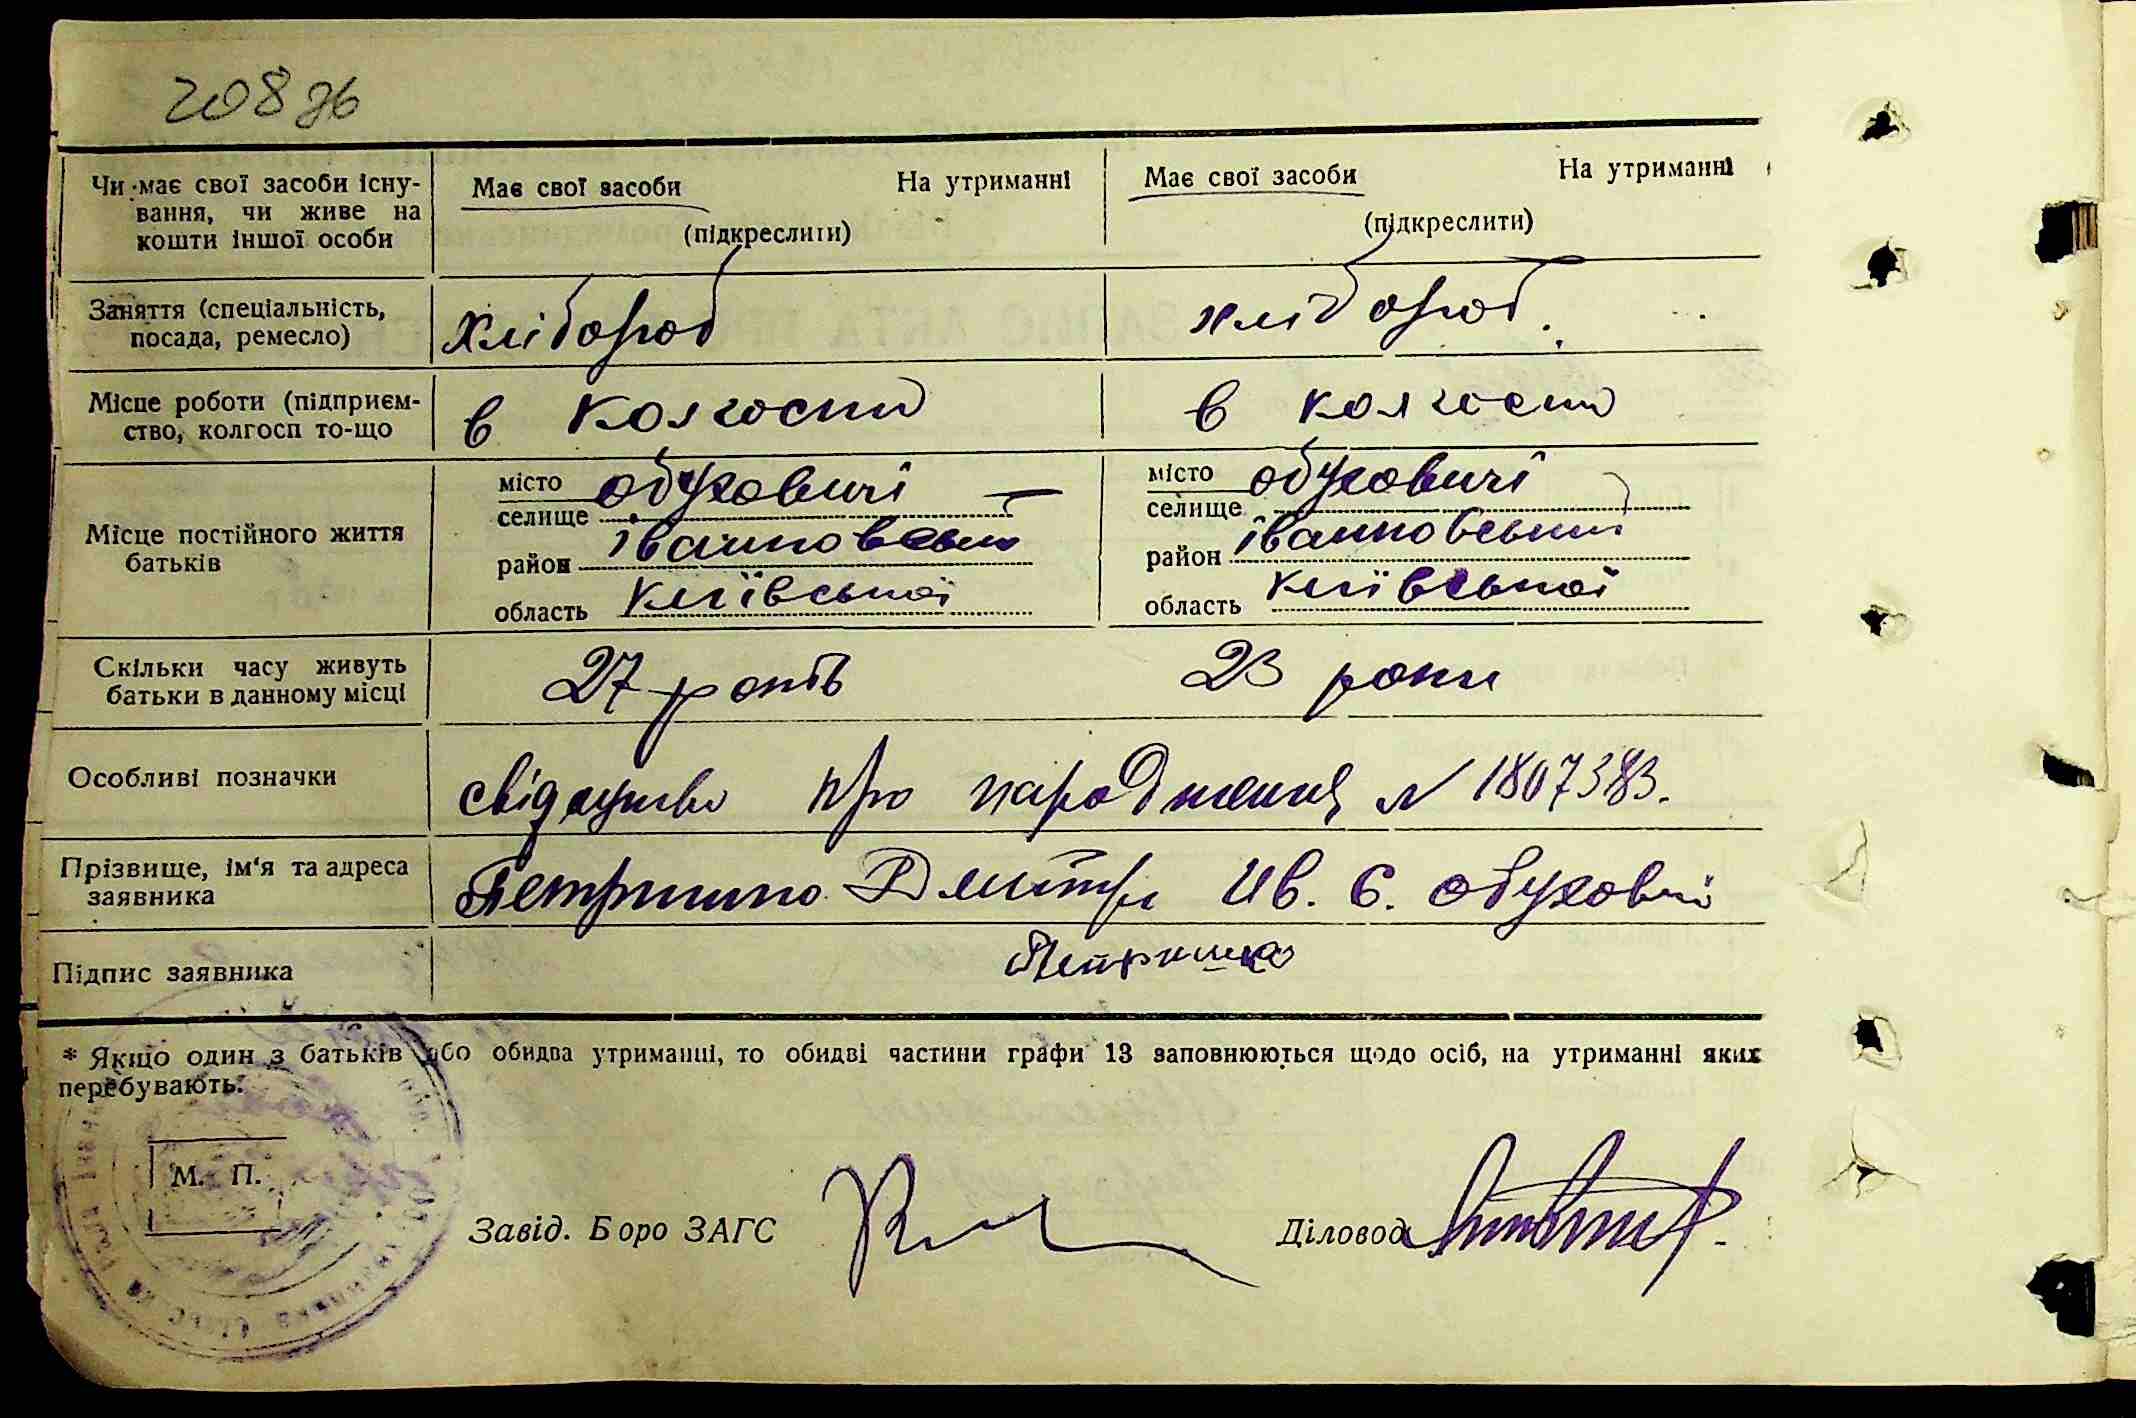 208 зв
Чи має свої засоби існу- Має свої засоби На утриманні Має свої засоби На утриманні
вання, чи живе на (підкреслити) (підкреслити)
кошти іншої особи
Заняття (спеціальність, хлібороб хлібороб.
посада, ремесло)
Місце роботи (підприєм- в колгоспі в колгоспі
ство, колгосп то-що
місто Обуховичі місто Обуховичі
селище селище
Місце постійного життя район Іванковський район Іванковський
батьків
область Київської область Київської
Скільки часу живуть 27 років 23 роки
батьки в данному місці
Особливі позначки свідоцтво про народження № 1807383.
Прізвище, ім'я та адреса Петришко Дмитро Ив. с. Обуховичі
заявника
Підпис заявника Петришко
* Якщо один з батьків або обидва утриманні, то обидві частини графи 13 заповнюються щодо осіб, на утриманні яких
перебувають.
М. П.
Завід. Бюро ЗАГС Діловод